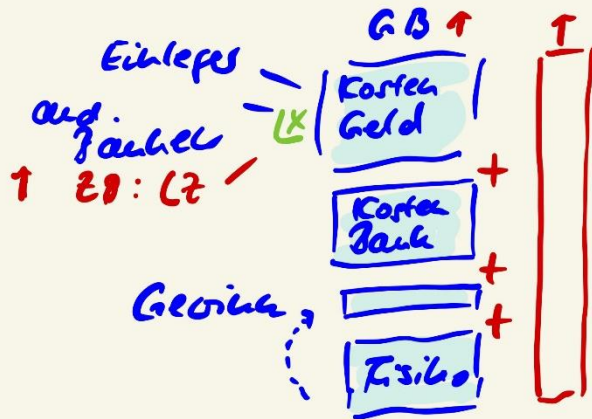 GB ↑
↑
Einleger
and.
Banken
↑ ZB: LZ
Kosten
Geld
+
Kosten
Bank
+
Gewinn
+
Risiko